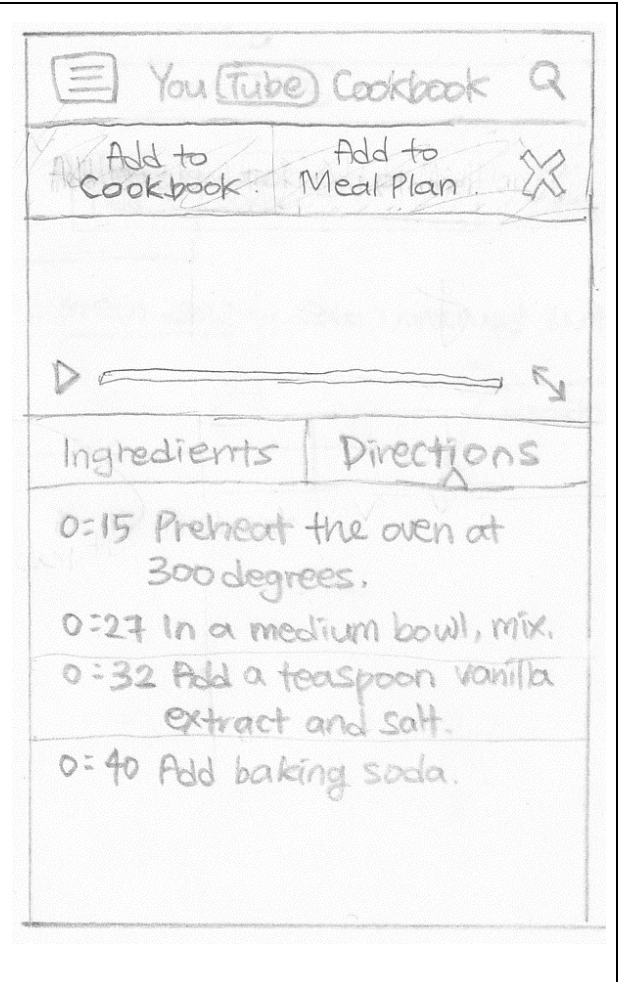 YouTube Cookbook
Add to
Cookbook.
Add to
Meal Plan.
Ingredients
Directions
0:15 Preheat the oven at
300 degrees.
0:27 In a medium bowl, mix.
0:32 Add a teaspoon vanilla
extract and salt.
0:40 Add baking soda.